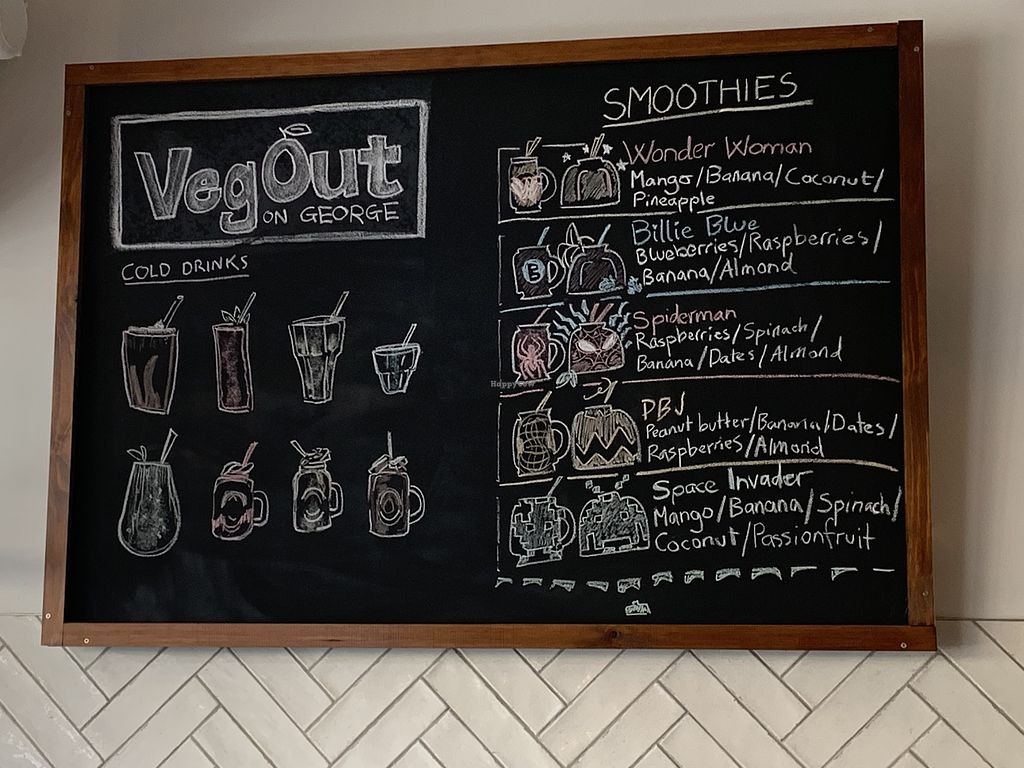 VegOut
ON GEORGE
COLD DRINKS
SMOOTHIES
Wonder Woman
Mango/Banana/Coconut/
Pineapple
Billie Blue
Blueberries/Raspberries/
Banana/Almond
Spiderman
Raspberries/Spinach/
Banana/Dates/Almond
PBJ
Peanut butter/Banana/Dates/
Raspberries/Almond
Space Invader
Mango/Banana/Spinach/
Coconut/Passionfruit
HappyCow